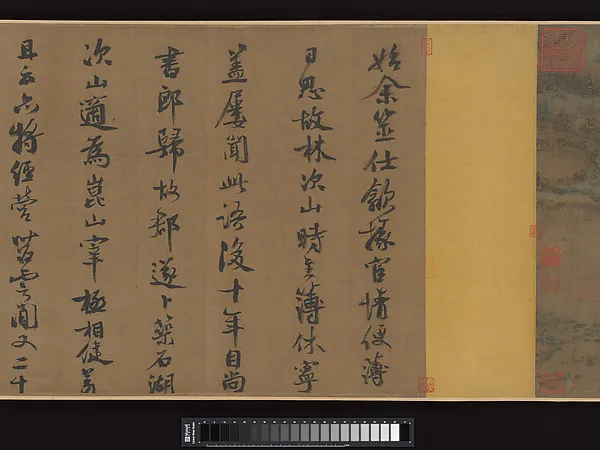 始余筮仕歙掾宦情便薄
日思故林次山時主簿休寧
蓋屢聞此語後十年自尚
書郎歸故郡遂卜築石湖
次山適為崑山宰極相健羨
且云亦將經營苕霅間又二十